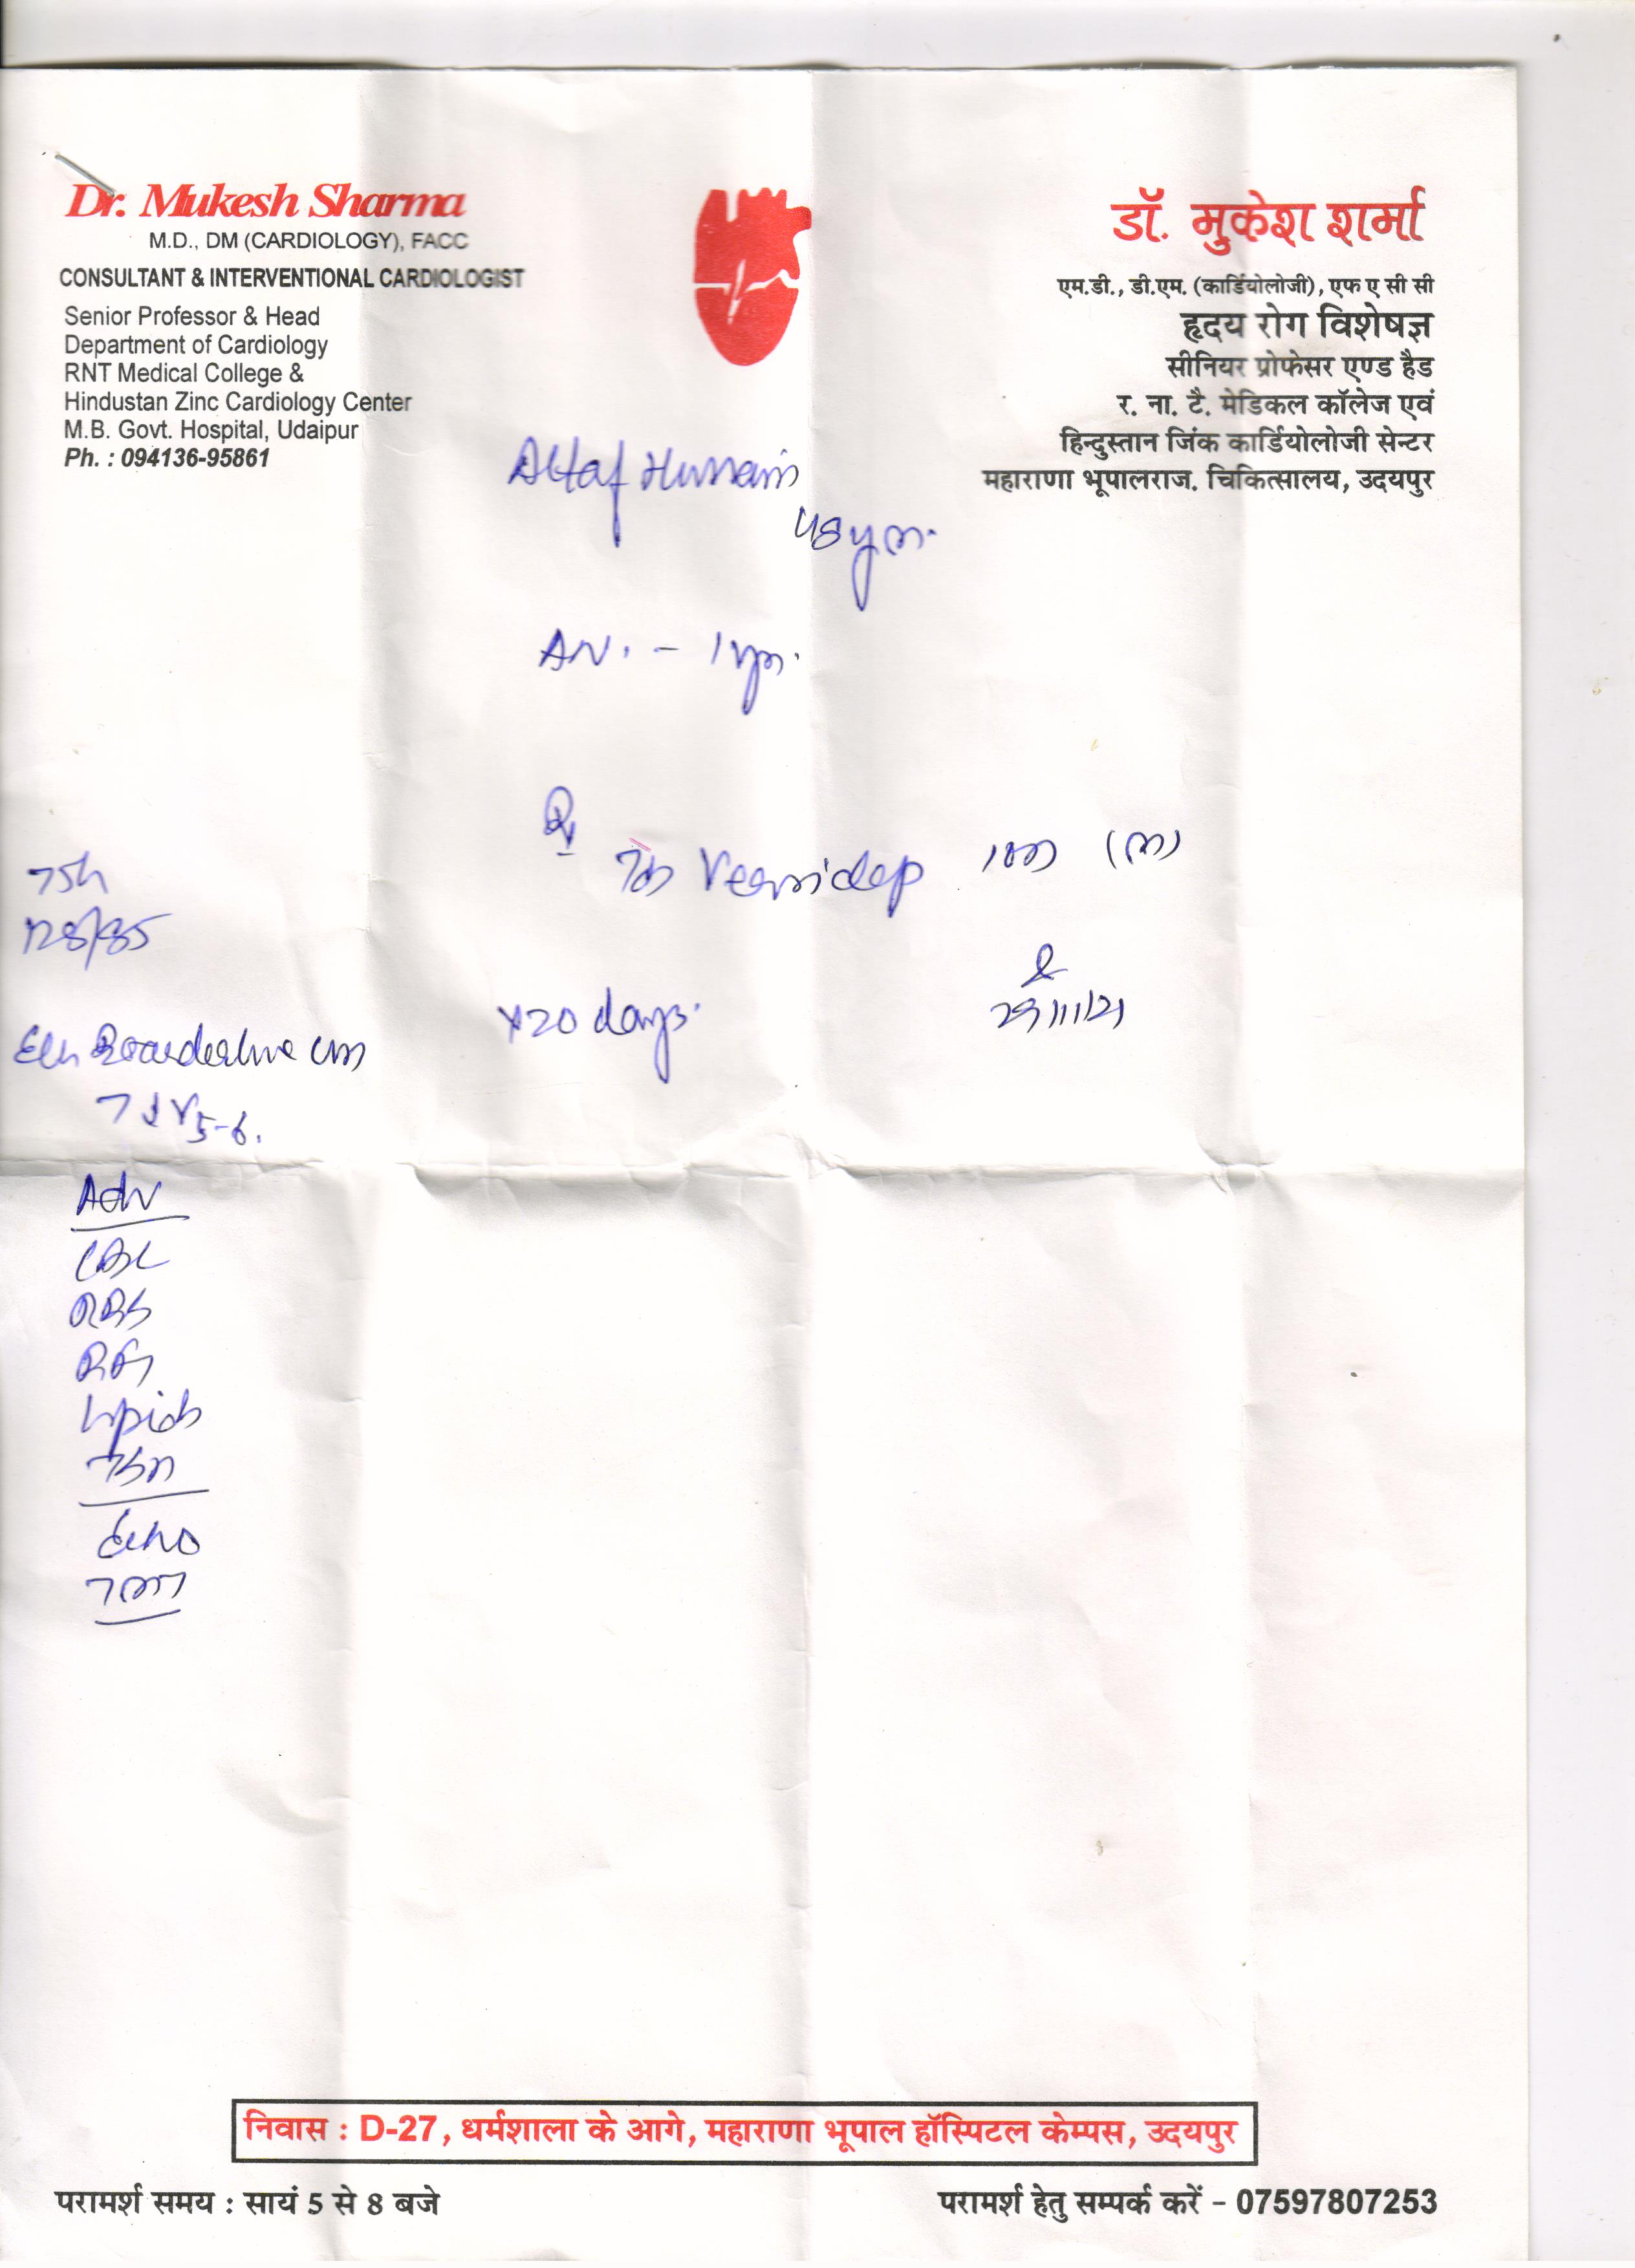 Dr. Mukesh Sharma
M.D., DM (CARDIOLOGY), FACC
CONSULTANT & INTERVENTIONAL CARDIOLOGIST
Senior Professor & Head
Department of Cardiology
RNT Medical College &
Hindustan Zinc Cardiology Center
M.B. Govt. Hospital, Udaipur
Ph. : 094136-95861
डॉ. मुकेश शर्मा
एम.डी., डी.एम. (कार्डियोलोजी), एफ ए सी सी
हृदय रोग विशेषज्ञ
सीनियर प्रोफेसर एण्ड हैड
र. ना. टै. मेडिकल कॉलेज एवं
हिन्दुस्तान जिंक कार्डियोलोजी सेन्टर
महाराणा भूपालराज. चिकित्सालय, उदयपुर
Altaf Hussain
48 yrs.
1 yr.
Rx
(m)
128/85
x 20 days.
29/11/21
Boarderline
V5-6.
Adv
CBC
RBS
RFT
Lipids
TSH
Echo
TMT
निवास : D-27, धर्मशाला के आगे, महाराणा भूपाल हॉस्पिटल केम्पस, उदयपुर
परामर्श समय : सायं 5 से 8 बजे
परामर्श हेतु सम्पर्क करें - 07597807253